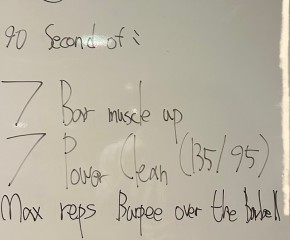 90 Second of :
7 Bar muscle up
7 Power Clean (135/95)
Max reps Burpee over the Barbell